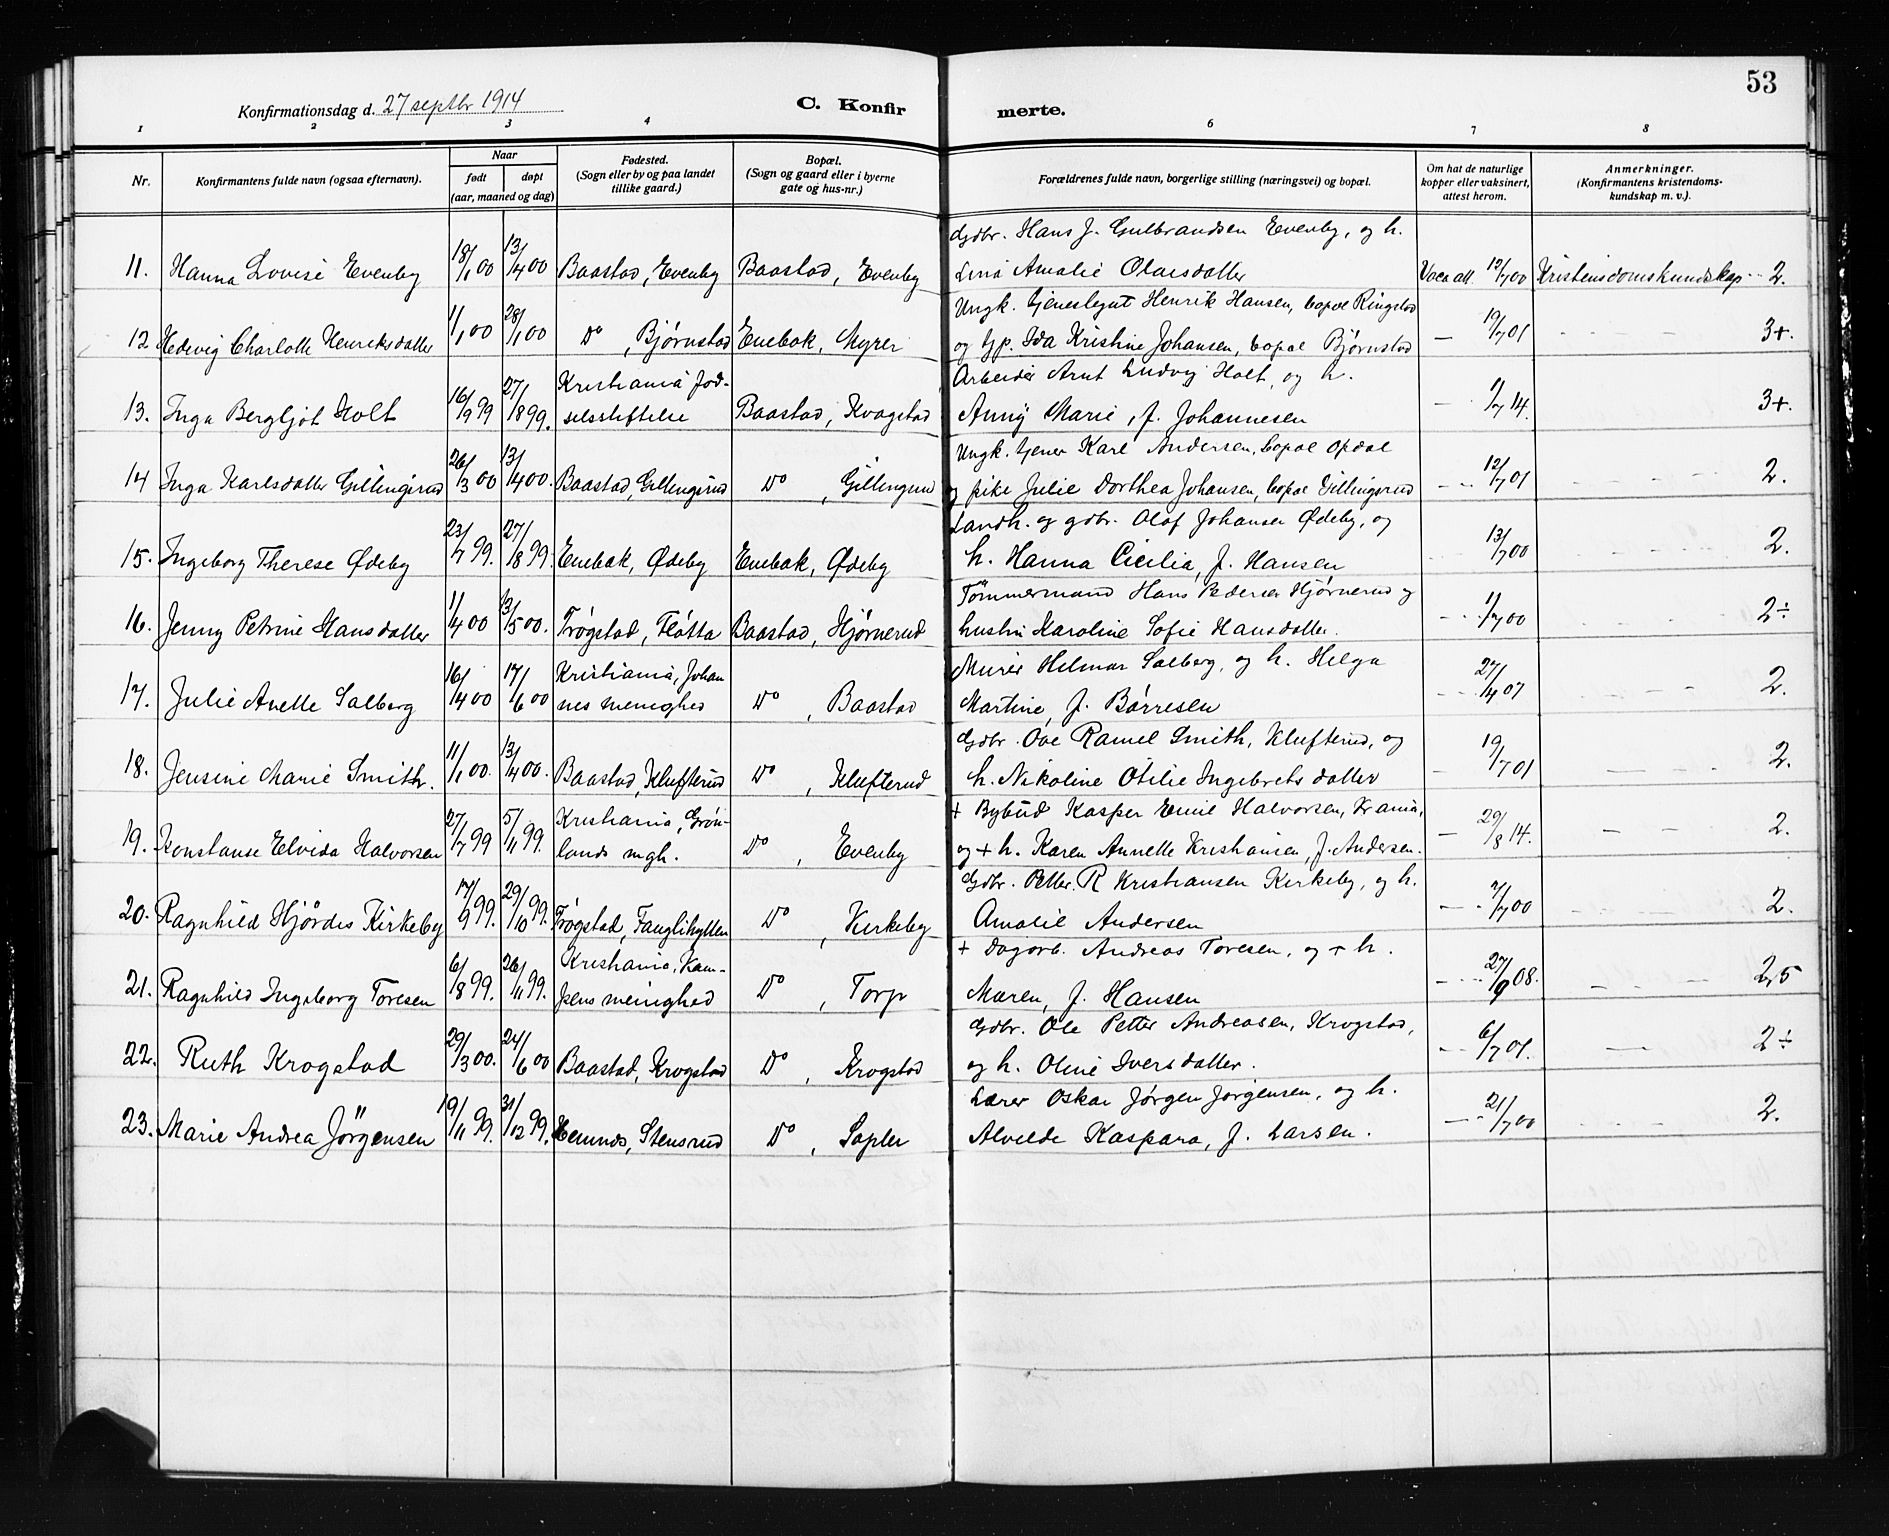 53
Konfirmationsdag d. 27 septbr 1914
C. Konfirmerte.
1 2 3 4 6 7 8
Nr. | Konfirmantens fulde navn (ogsaa efternavn). | Naar født døpt (aar, maaned og dag) | Fødested. (Sogn eller by og paa landet tillike gaard.) | Bopæl. (Sogn og gaard eller i byerne gate og hus-nr.) | Forældrenes fulde navn, borgerlige stilling (næringsvei) og bopæl. | Om hat de naturlige kopper eller vaksinert, attest herom. | Anmerkninger. (Konfirmantens kristendoms-kundskap m. v.).
Gdbr. Hans J. Gulbrandsen Evenby, og h.
11. Hanna Lovise Evenby 18/1 00 13/4 00 Baastad, Evenby Baastad, Evenby Lina Amalie Olausdatter Vacc. att. 12/7 00 Kristendomskundskap 2.
Ungk. tjenestegut Henrik Hansen, bopæl Ringstad
12 Hedevig Charlotte Henriksdatter 1/1 00 28/1 00 Do, Bjørnstad Enebak, Myrer og tjp. Ida Kristine Johansen, bopæl Bjørnstad — 19/7 01 3+.
Kristiania Fød- Arbeider Arnt Ludvig Holt, og h.
13. Inga Bergljot Holt 16/9 99 27/1899. selsstiftelse Baastad, Kragstad Anny Marie, f. Johannesen — 1/7 14. 3+.
Ungk. tjener Karl Andersen, bopæl Opdal
14 Inga Karlsdatter Gillingsrud 26/3 00 13/4 00. Baastad, Gillingsrud Do, Gillingsrud og pike Julie Dorthea Johansen, bopæl Gillingsrud 12/7 01 2.
Landh. og gdbr. Olaf Johansen Ødeby, og
15. Ingeborg Therese Ødeby 23/7 99. 27/8 99. Enebak, Ødeby Enebak, Ødeby h. Hanna Cicilia, f. Hansen 13/7 00 2.
Tømmermand Hans Pedersen Hjørnerud og
16. Jenny Petrine Hansdatter 1/4 00 13/5 00. Trøgstad, Fløtta Baastad, Hjørnerud hustru Karoline Sofie Hansdatter. 11/7 00 2÷
Kristiania, Johan Murer Hilmar Salberg, og h. Helga
17. Julie Anette Salberg 16/4 00 17/6 00 nes menighed Do, Baastad Martine, f. Børresen 27/4 07 2.
Gdbr. Ove Ramel Smith, Klufterud, og
18. Jensine Marie Smith. 11/1 00. 13/4 00. Baastad, Klufterud Do, Klufterud h. Nikoline Otilie Ingebretsdatter — 19/7 01 2.
Kristiania, Grøn- + Bybud Kasper Emil Halvorsen, Krania,
19. Konstanse Elvida Halvorsen 27/7 99 5/11 99. lands mgh. Do, Evenby og + h. Karen Annette Kristiansen, f. Andersen. — 29/8 14. 2.
Gdbr. Petter R Kristiansen Kirkeby, og h.
20. Ragnhild Hjørdis Kirkeby 17/9 99. 29/10 99. Trøgstad, Fuglihyllen Do, Kirkeby Amalie Andersen 7/7 00 2.
Kristiania, Kam- + Dagarb. Andreas Toresen, og + h.
21. Ragnhild Ingeborg Toresen 6/8 99. 26/11 99. pens menighed Do, Torp Maren, f. Hansen 27/9 08. 2,5
Gdbr. Ole Petter Andreasen, Krogstad,
22. Ruth Krogstad 29/3 00. 24/6 00 Baastad, Krogstad Do, Krogstad og h. Oline Iversdatter. 6/7 01. 2÷
Lærer Oskar Jørgen Jørgensen, og h.
23. Marie Andrea Jørgensen 19/11 99. 31/12 99. Hemnes, Stensrud Do, Sopler Alvilde Kaspara, f. Larsen. 21/7 00 2.